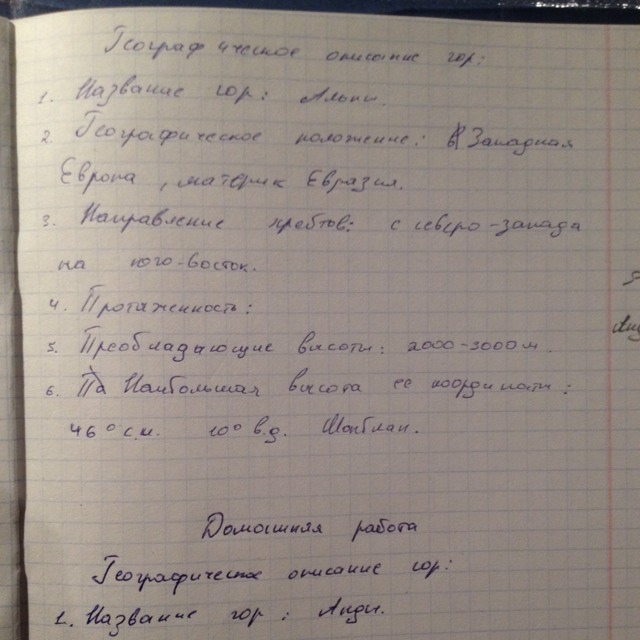 Географическое описание гор:
1. Название гор: Альпы.
2. Географическое положение: Западная
Европа, материк Евразия.
3. Направление хребтов: с северо-запада
на юго-восток.
4. Протяженность:
5. Преобладающие высоты: 2000-3000 м.
6. Наибольшая высота ее координаты:
46° с.ш. 10° в.д. Монблан.
Домашняя работа
Географическое описание гор:
1. Название гор: Анды.